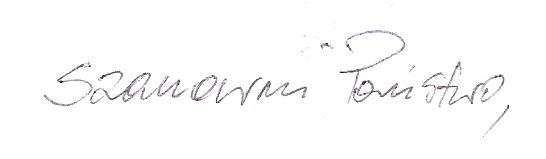 Szanowni Państwo,